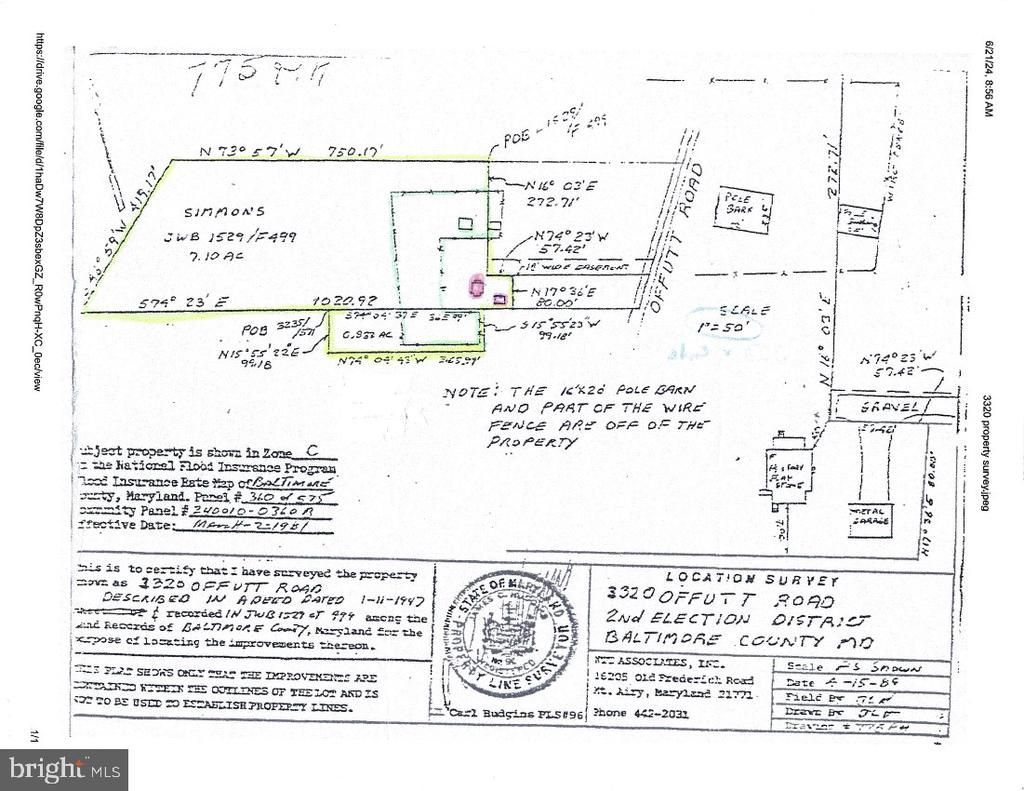 6/21/24, 8:56 AM
3320 property survey.jpeg
https://drive.google.com/file/d/1haDw7W8DpZ3sbexGZ_R0wPnqH-XC_0ec/view
1/1
POB - 1529/F 499
N 73° 57' W 750.17'
N16° 03'E
272.71'
SIMMONS
JWB 1529/F499
7.10 AC
N74° 23'W
57.42'
N17° 36'E
80.00'
574° 23' E 1020.92
S15°55'23"W
99.18'
POB 3235/511
0.932 AC
N15°55'22"E
99.18
N74° 04' 43"W 365.97'
OFFUTT ROAD
POLE
BARN
272.71'
WIRE FENCE
SCALE
1"=50'
N74° 23'W
57.42'
GRAVEL
METAL
GARAGE
NOTE: THE 16'X20' POLE BARN
AND PART OF THE WIRE
FENCE ARE OFF OF THE
PROPERTY
bject property is shown in Zone C
the National Flood Insurance Program
lood Insurance Rate Map of BALTIMORE
ounty, Maryland. Panel # 360 of 575
ommunity Panel # 240010-0360 B
ffective Date: March-2-1981
his is to certify that I have surveyed the property
nown as 3320 OFFUTT ROAD
DESCRIBED IN A DEED DATED 1-11-1947
& recorded IN JWB 1529 at 499 among the
and Records of BALTIMORE County, Maryland for the
urpose of locating the improvements thereon.
THIS PLAT SHOWS ONLY THAT THE IMPROVEMENTS ARE
CONTAINED WITHIN THE OUTLINES OF THE LOT AND IS
NOT TO BE USED TO ESTABLISH PROPERTY LINES.
STATE OF MARYLAND
PROPERTY LINE SURVEYOR
Carl Hudgins PLS#96
LOCATION SURVEY
3320 OFFUTT ROAD
2nd ELECTION DISTRICT
BALTIMORE COUNTY MD
NTT ASSOCIATES, INC.
16205 Old Frederick Road
Mt. Airy, Maryland 21771
Phone 442-2031
Scale AS SHOWN
Date 4-15-89
Field By JLF
Drawn By JLF
bright MLS